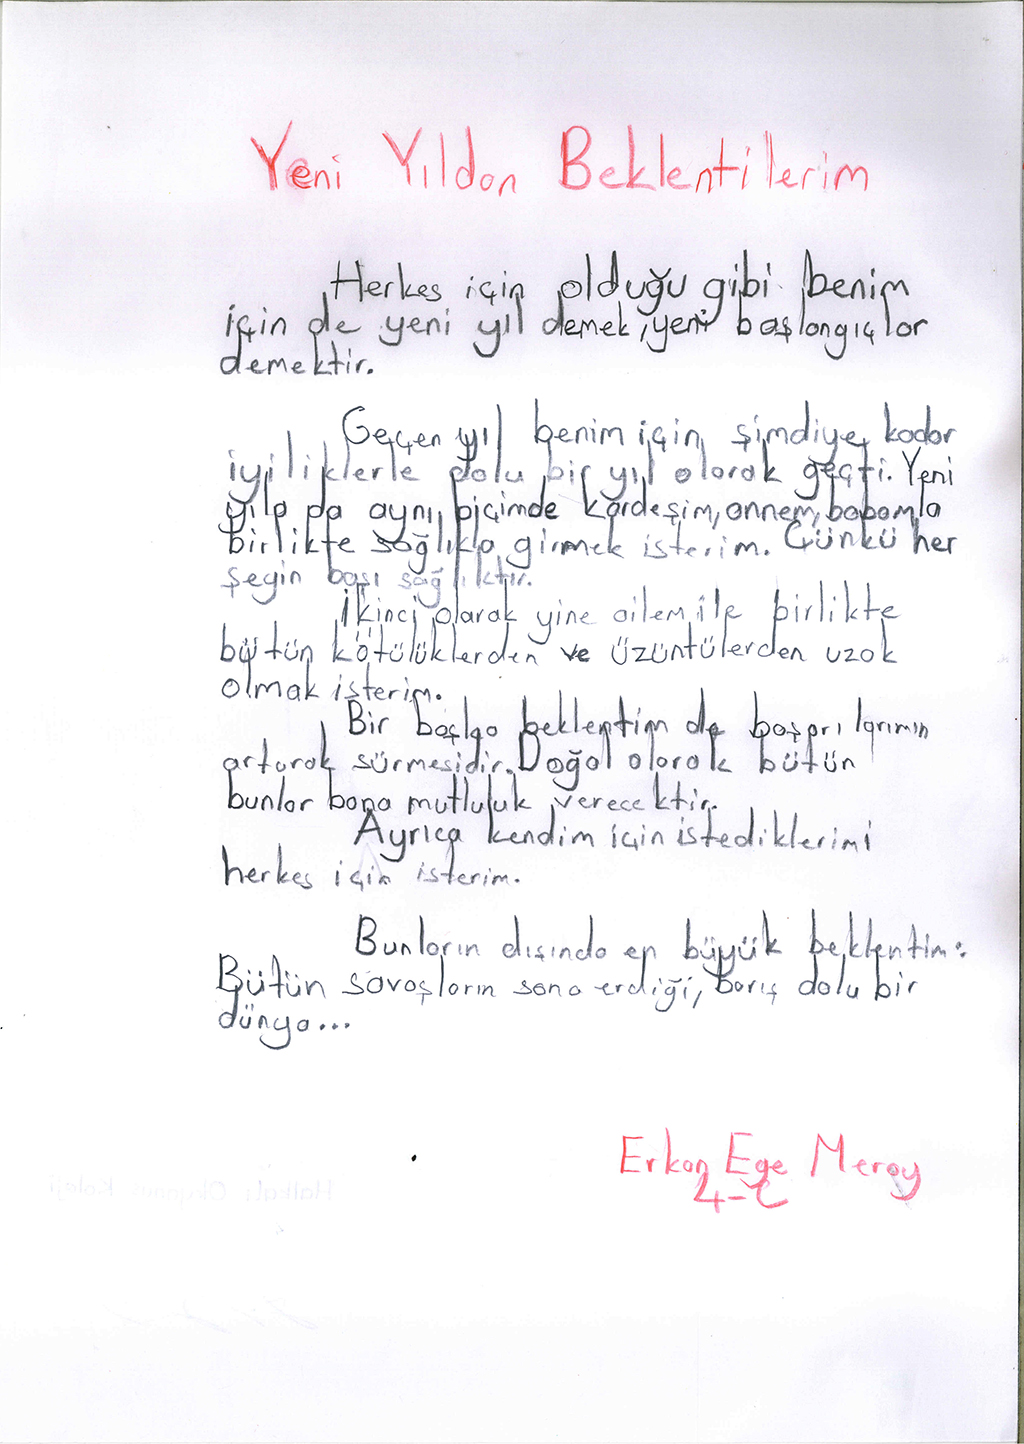 Yeni Yıldan Beklentilerim
Herkes için olduğu gibi benim
için de yeni yıl demek, yeni başlangıçlar
demektir.
Geçen yıl benim için şimdiye kadar
iyiliklerle dolu bir yıl olarak geçti. Yeni
yıla da aynı biçimde kardeşim, annem, babamla
birlikte sağlıkla girmek isterim. Çünkü her
şeyin başı sağlıktır.
İkinci olarak yine ailem ile birlikte
bütün kötülüklerden ve üzüntülerden uzak
olmak isterim.
Bir başka beklentim de başarılarımın
artarak sürmesidir. Doğal olarak bütün
bunlar bana mutluluk verecektir.
Ayrıca kendim için istediklerimi
herkes için isterim.
Bunların dışında en büyük beklentim:
Bütün savaşların sona erdiği, barış dolu bir
dünya...
Erkan Ege Meray
4-C
Halkalı Okyanus Koleji